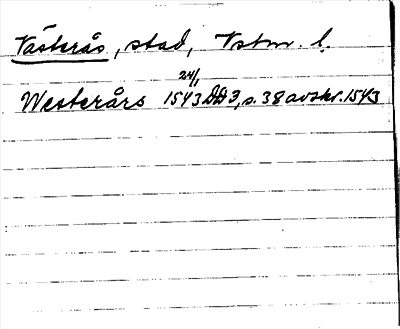 Västerås, stad, Vstm. l.
Westerårs 1543 24/1 DD3, s. 38 avskr. 1543